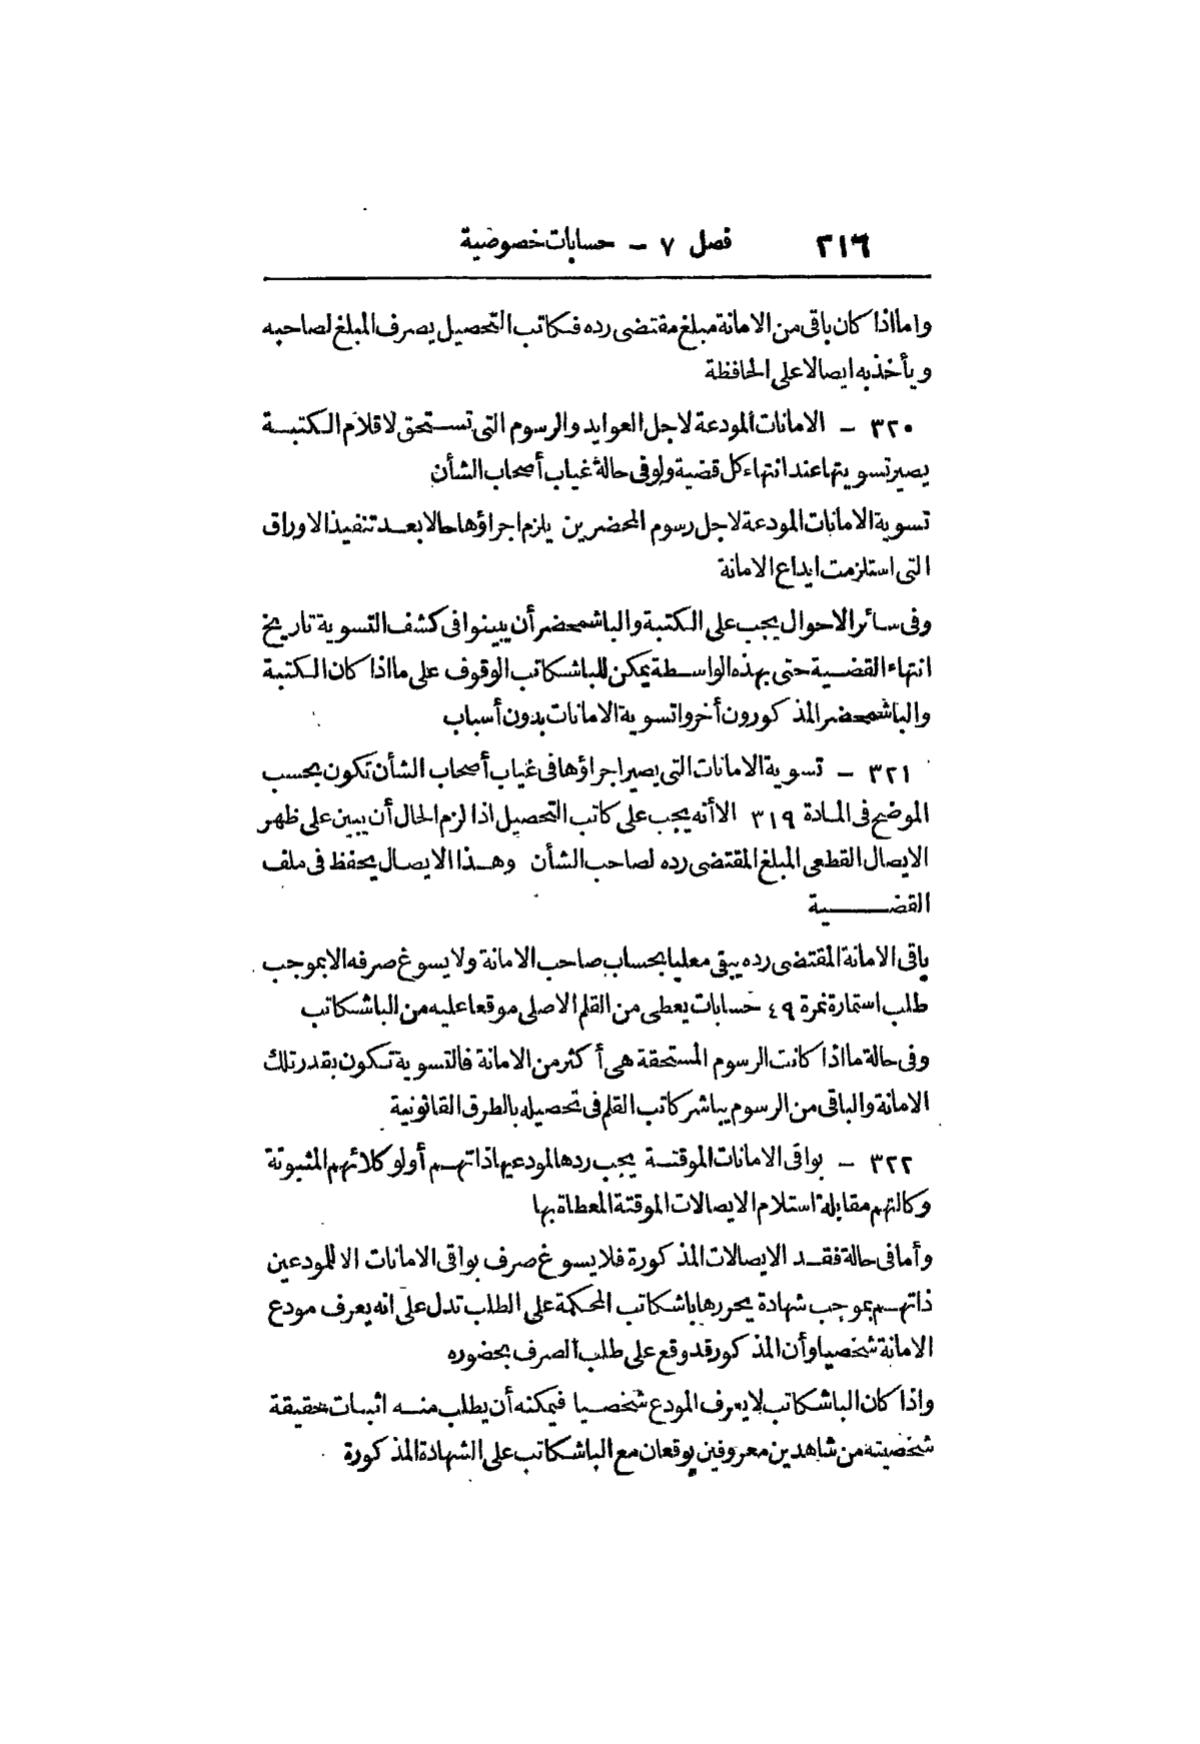 ٢١٦ فصل ٧ - حسابات خصوصية
واما اذا كان باقى من الامانة مبلغ مقتضى رده فكاتب التحصيل يصرف المبلغ لصاحبه
ويأخذ به ايصالا على الحافظة
٣٢٠ - الامانات المودعة لاجل العوايد والرسوم التى تستحق لاقلام الكتبة
يصير تسويتها عند انتهاء كل قضية ولو فى حالة غياب أصحاب الشأن
تسوية الامانات المودعة لاجل رسوم المحضرين يلزم اجراؤها حالا بعد تنفيذ الاوراق
التى استلزمت ايداع الامانة
وفى سائر الاحوال يجب على الكتبة والباشمحضر أن يبينوا فى كشف التسوية تاريخ
انتهاء القضية حتى بهذه الواسطة يمكن للباشكاتب الوقوف على ما اذا كان الكتبة
والباشمحضر المذكورون أخروا تسوية الامانات بدون أسباب
٣٢١ - تسوية الامانات التى يصير اجراؤها فى غياب أصحاب الشأن تكون بحسب
الموضح فى المادة ٣١٩ الا أنه يجب على كاتب التحصيل اذا لزم الحال أن يبين على ظهر
الايصال القطعى المبلغ المقتضى رده لصاحب الشأن وهذا الايصال يحفظ فى ملف
القضية
باقى الامانة المقتضى رده يبقى معليا بحساب صاحب الامانة ولا يسوغ صرفه الا بموجب
طلب استمارة نمرة ٤٩ حسابات يعطى من القلم الاصلى موقعا عليه من الباشكاتب
وفى حالة ما اذا كانت الرسوم المستحقة هى أكثر من الامانة فالتسوية تكون بقدر تلك
الامانة والباقى من الرسوم يباشر كاتب القلم فى تحصيله بالطرق القانونية
٣٢٢ - بواقى الامانات الموقتة يجب ردها لمودعيها ذاتهم أو لوكلائهم المثبوتة
وكالتهم مقابلة استلام الايصالات الموقتة المعطاة بها
وأما فى حالة فقد الايصالات المذكورة فلا يسوغ صرف بواقى الامانات الا للمودعين
ذاتهم بموجب شهادة يحررها باشكاتب المحكمة على الطلب تدل على انه يعرف مودع
الامانة شخصيا وأن المذكور قد وقع على طلب الصرف بحضوره
واذا كان الباشكاتب لا يعرف المودع شخصيا فيمكنه أن يطلب منه اثبات حقيقة
شخصيته من شاهدين معروفين يوقعان مع الباشكاتب على الشهادة المذكورة